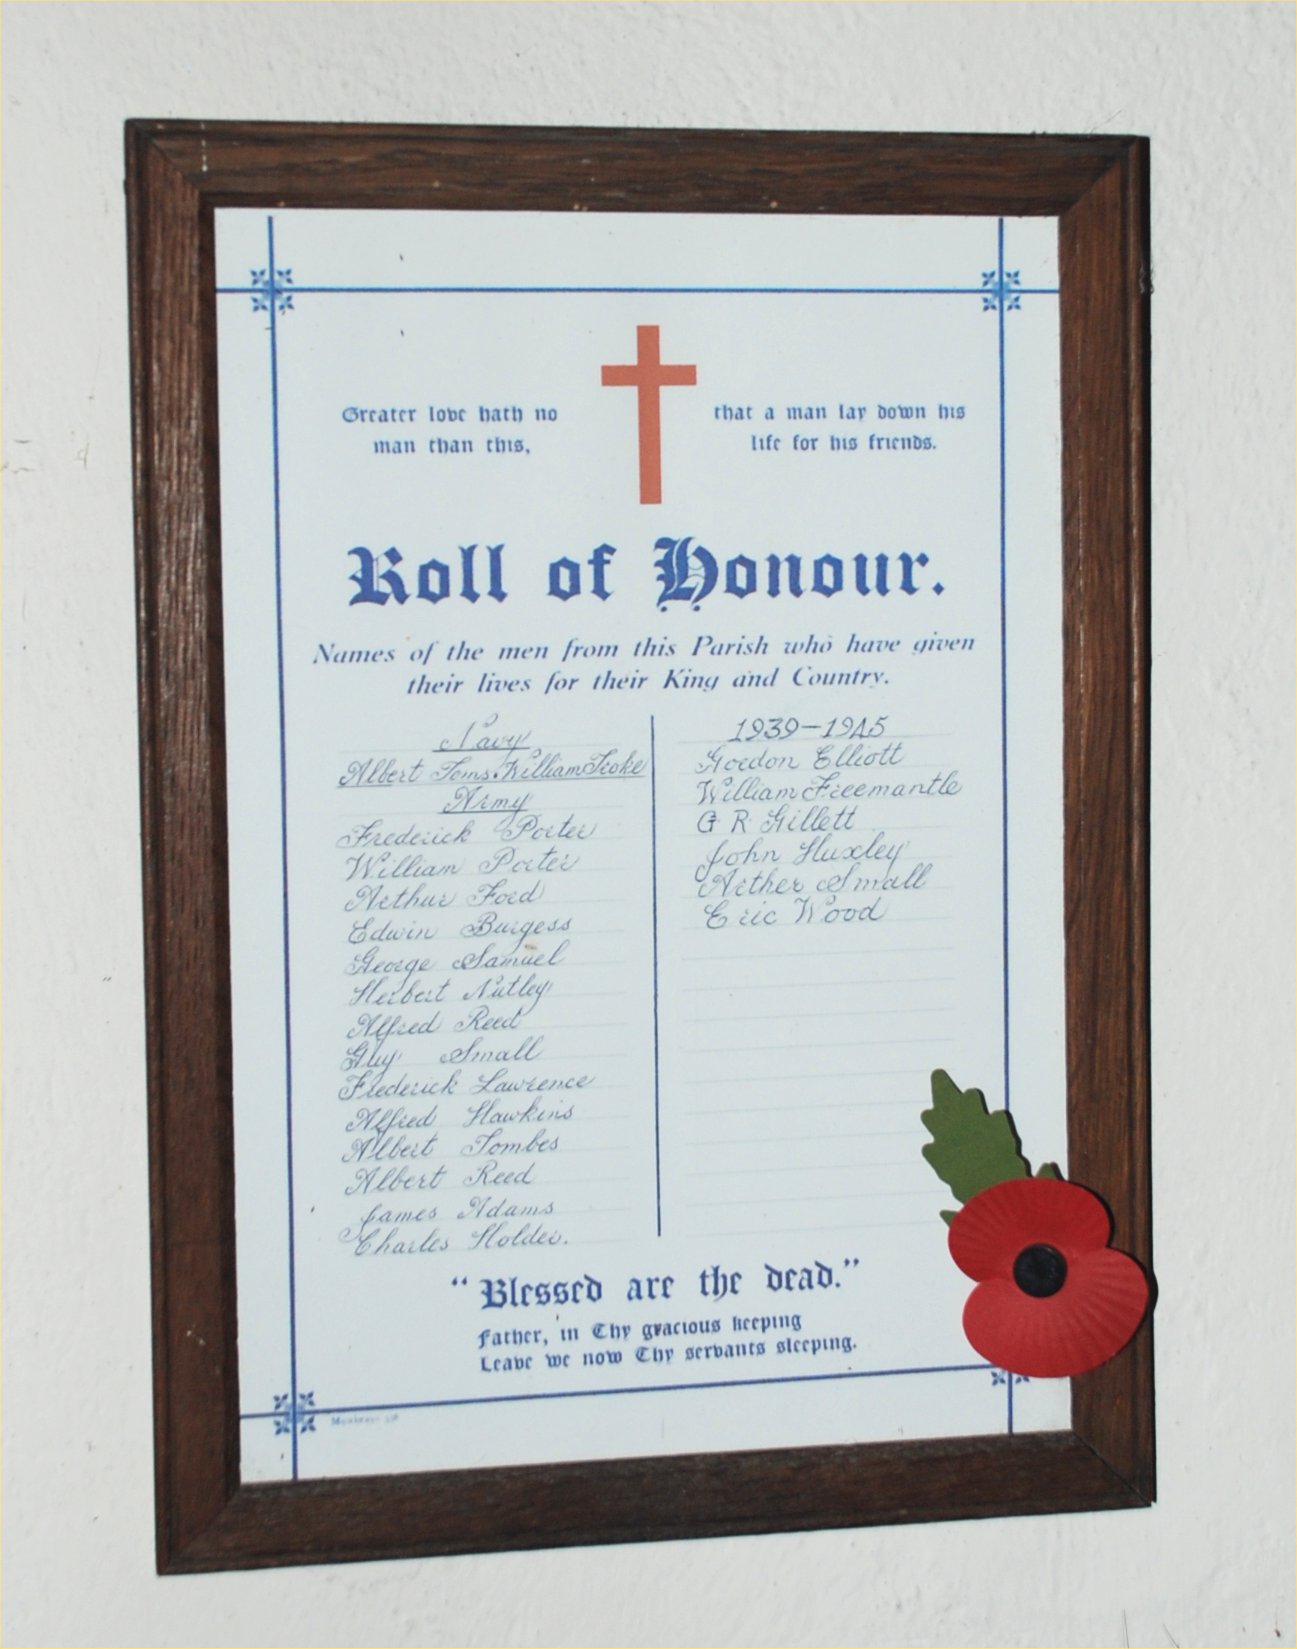 Greater love hath no
man than this,
that a man lay down his
life for his friends.
Roll of Honour.
Names of the men from this Parish who have given
their lives for their King and Country.
Navy
Albert Toms. William Troke
Army
Frederick Porter
William Porter
Arthur Ford
Edwin Burgess
George Samuel
Herbert Nutley
Alfred Reed
Guy Small
Frederick Lawrence
Alfred Hawkins
Albert Tombes
Albert Reed
James Adams
Charles Holder.
1939-1945
Gordon Elliott
William Freemantle
G R Gillett
John Huxley
Arther Small
Eric Wood
"Blessed are the dead."
Father, in Thy gracious keeping
Leave we now Thy servants sleeping.